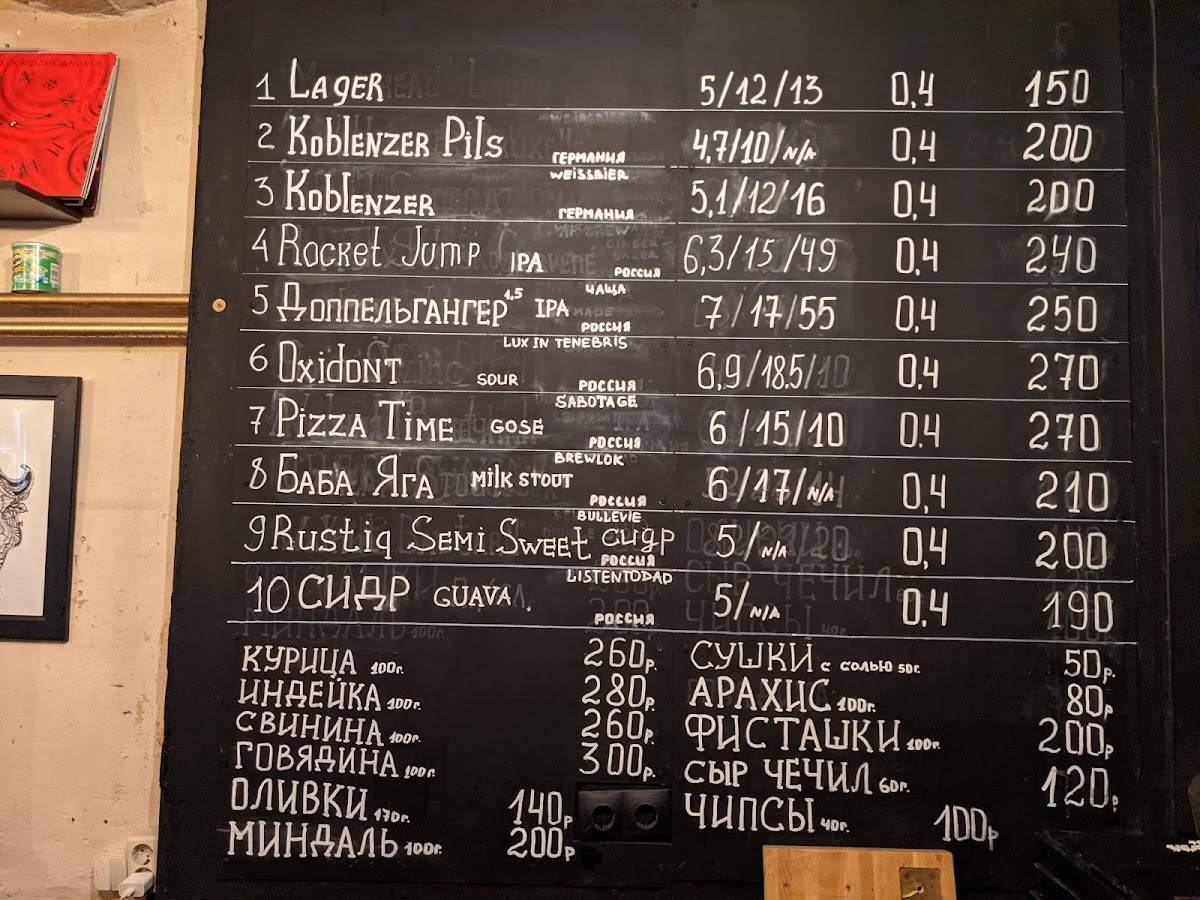 1 Lager 5/12/13 0,4 150
2 Koblenzer Pils ГЕРМАНИЯ 4,7/10/N/A 0,4 200
WEISSBIER
3 Koblenzer ГЕРМАНИЯ 5,1/12/16 0,4 200
4 Rocket Jump IPA РОССИЯ 6,3/15/49 0,4 240
ЧАЩА
5 Доппельгангер 1.5 IPA РОССИЯ 7/17/55 0,4 250
LUX IN TENEBRIS
6 Oxidont SOUR РОССИЯ 6,9/18.5/10 0,4 270
SABOTAGE
7 Pizza Time GOSE РОССИЯ 6/15/10 0.4 270
BREWLOK
8 Баба Яга MILK STOUT РОССИЯ 6/17/N/A 0,4 210
BULLEVIE
9 Rustiq Semi Sweet сидр РОССИЯ 5/N/A 0,4 200
LISTENTODAD
10 СИДР GUAVA. РОССИЯ 5/N/A 0,4 190
КУРИЦА 100г. 260р.
ИНДЕЙКА 100г. 280р.
СВИНИНА 100г. 260р.
ГОВЯДИНА 100г. 300р.
ОЛИВКИ 170г. 140р
МИНДАЛЬ 100г. 200р
СУШКИ с солью 50г. 50р.
АРАХИС 100г. 80р
ФИСТАШКИ 100г. 200р
СЫР ЧЕЧИЛ 60г. 120р
ЧИПСЫ 40г. 100р